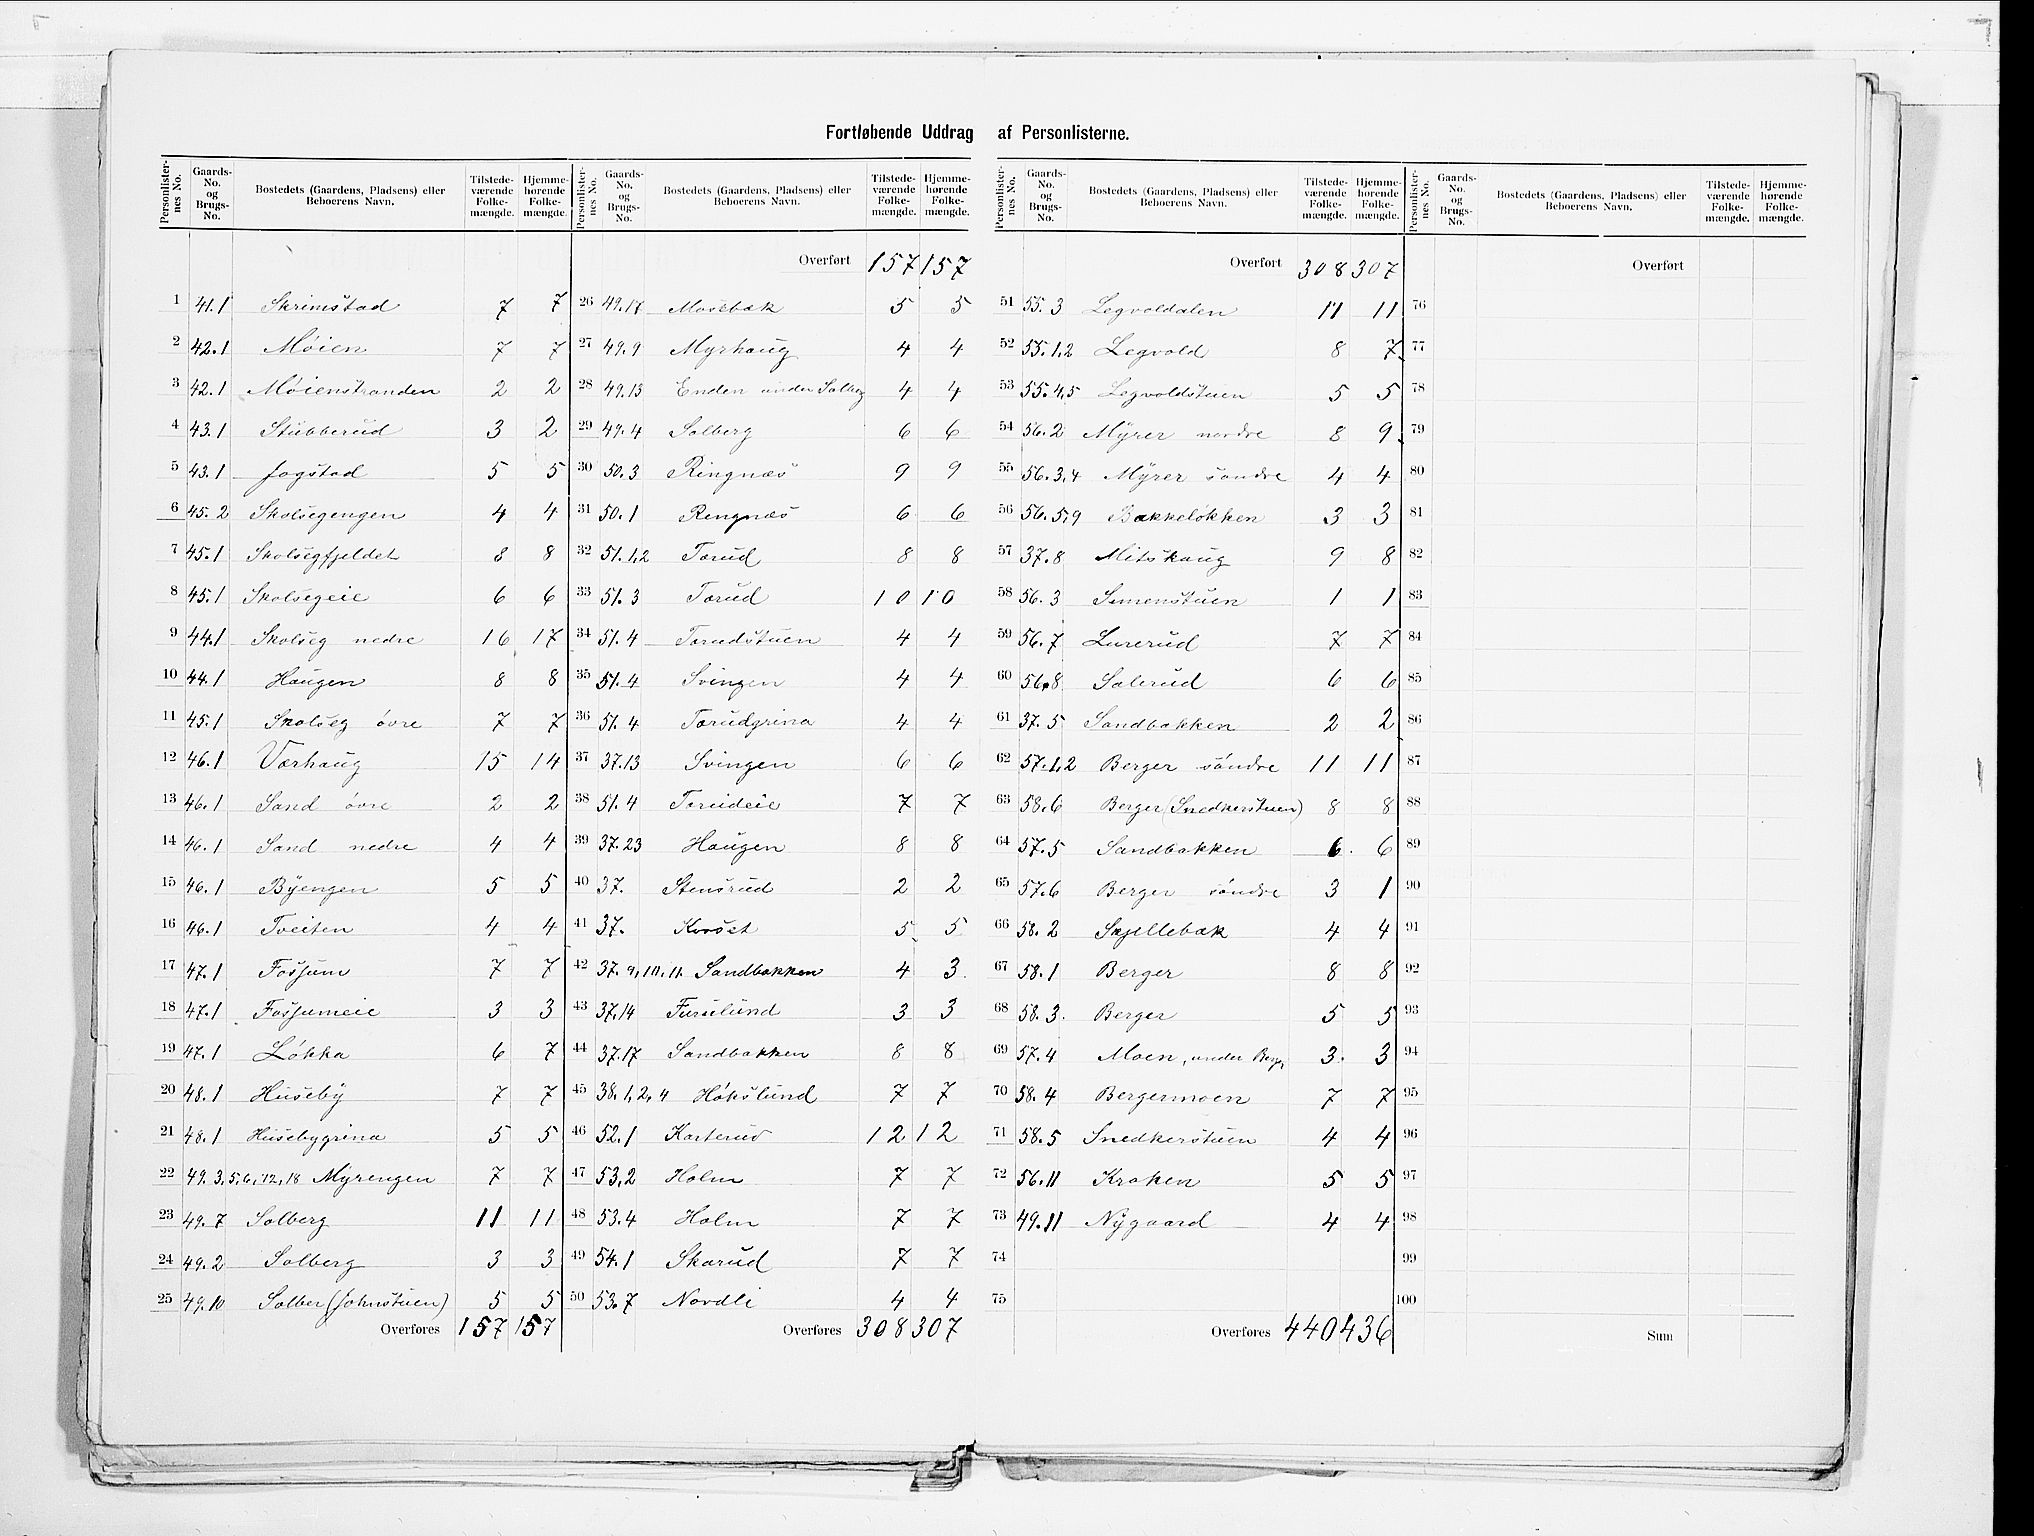 Fortløbende Uddrag af Personlisterne.
Personlister-nes No. Gaards-No. og Brugs-No. Bostedets (Gaardens, Pladsens) eller Beboerens Navn. Tilstede-værende Folke-mængde. Hjemme-hørende Folke-mængde.
1 41.1 Skrimstad 7 7
2 42.1 Møien 7 7
3 42.1 Møienstranden 2 2
4 43.1 Stubberud 3 2
5 43.1 Jogstad 5 5
6 45.2 Skolsegengen 4 4
7 45.1 Skolsegfjeldet 8 8
8 45.1 Skolsegeie 6 6
9 44.1 Skolseg nedre 16 17
10 44.1 Haugen 8 8
11 45.1 Skolseg øvre 7 7
12 46.1 Værhaug 15 14
13 46.1 Sand øvre 2 2
14 46.1 Sand nedre 4 4
15 46.1 Byengen 5 5
16 46.1 Tveiten 4 4
17 47.1 Fossum 7 7
18 47.1 Fossumeie 3 3
19 47.1 Løkka 6 7
20 48.1 Huseby 7 7
21 48.1 Husebygrina 5 5
22 49.3,5,6,12,18 Myrengen 7 7
23 49.7 Solberg 11 11
24 49.2 Solberg 3 3
25 49.10 Solber (Johnstuen) 5 5
Overføres 157 157
Personlister-nes No. Gaards-No. og Brugs-No. Bostedets (Gaardens, Pladsens) eller Beboerens Navn. Tilstede-værende Folke-mængde. Hjemme-hørende Folke-mængde.
Overført 157 157
26 49.17 Mosebæk 5 5
27 49.9 Myrhaug 4 4
28 49.13 Enden under Solberg 4 4
29 49.4 Solberg 6 6
30 50.3 Ringnæs 9 9
31 50.1 Ringnæs 6 6
32 51.1,2 Torud 8 8
33 51.3 Torud 10 10
34 51.4 Torudstuen 4 4
35 51.4 Svingen 4 4
36 51.4 Torudgrina 4 4
37 37.13 Svingen 6 6
38 51.4 Torudeie 7 7
39 37.23 Haugen 8 8
40 37. Stensrud 2 2
41 37. 5 5
42 37.9,10,11 Sandbakken 4 3
43 37.14 Furulund 3 3
44 37.17 Sandbakken 8 8
45 38.1,2,4 Hokslund 7 7
46 52.1 Korterud 12 12
47 53.2 Holm 7 7
48 53.4 Holm 7 7
49 54.1 Skarud 7 7
50 53.7 Nordli 4 4
Overføres 308 307
Personlister-nes No. Gaards-No. og Brugs-No. Bostedets (Gaardens, Pladsens) eller Beboerens Navn. Tilstede-værende Folke-mængde. Hjemme-hørende Folke-mængde.
Overført 308 307
51 55.3 Legvoldalen 11 11
52 55.1,2 Legvold 8 7
53 55.4,5 Legvoldstuen 5 5
54 56.2 Myrer nordre 8 9
55 56.3,4 Myrer søndre 4 4
56 56.5,9 Bakkeløkken 3 3
57 37.8 Mitskaug 9 8
58 56.3 Simenstuen 1 1
59 56.7 Lurerud 7 7
60 56.8 Solerud 6 6
61 37.5 Sandbakken 2 2
62 57.1,2 Berger søndre 11 11
63 58.6 Berger (Snedkerstuen) 8 8
64 57.5 Sandbakken 6 6
65 57.6 Berger søndre 3 1
66 58.2 Skjellebæk 4 4
67 58.1 Berger 8 8
68 58.3 Berger 5 5
69 57.4 Moen, under Berg 3 3
70 58.4 Bergermoen 7 7
71 58.5 Snedkerstuen 4 4
72 56.11 Kroken 5 5
73 49.11 Nygaard 4 4
74
75
Overføres 440 436
Personlister-nes No. Gaards-No. og Brugs-No. Bostedets (Gaardens, Pladsens) eller Beboerens Navn. Tilstede-værende Folke-mængde. Hjemme-hørende Folke-mængde.
Overført
76
77
78
79
80
81
82
83
84
85
86
87
88
89
90
91
92
93
94
95
96
97
98
99
100
Sum